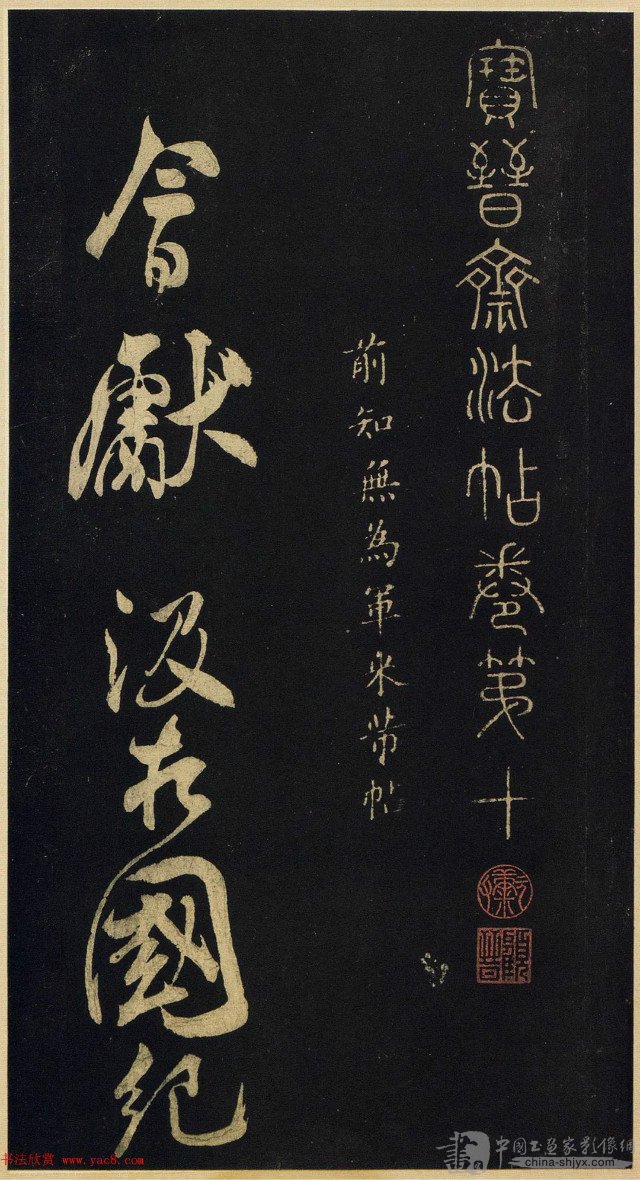 寶晉齋法帖卷第十
前知無為軍米芾帖
會獻
國紀
书法欣赏 www.yac8.com
書
中國书画家影像網
china-shjyx.com